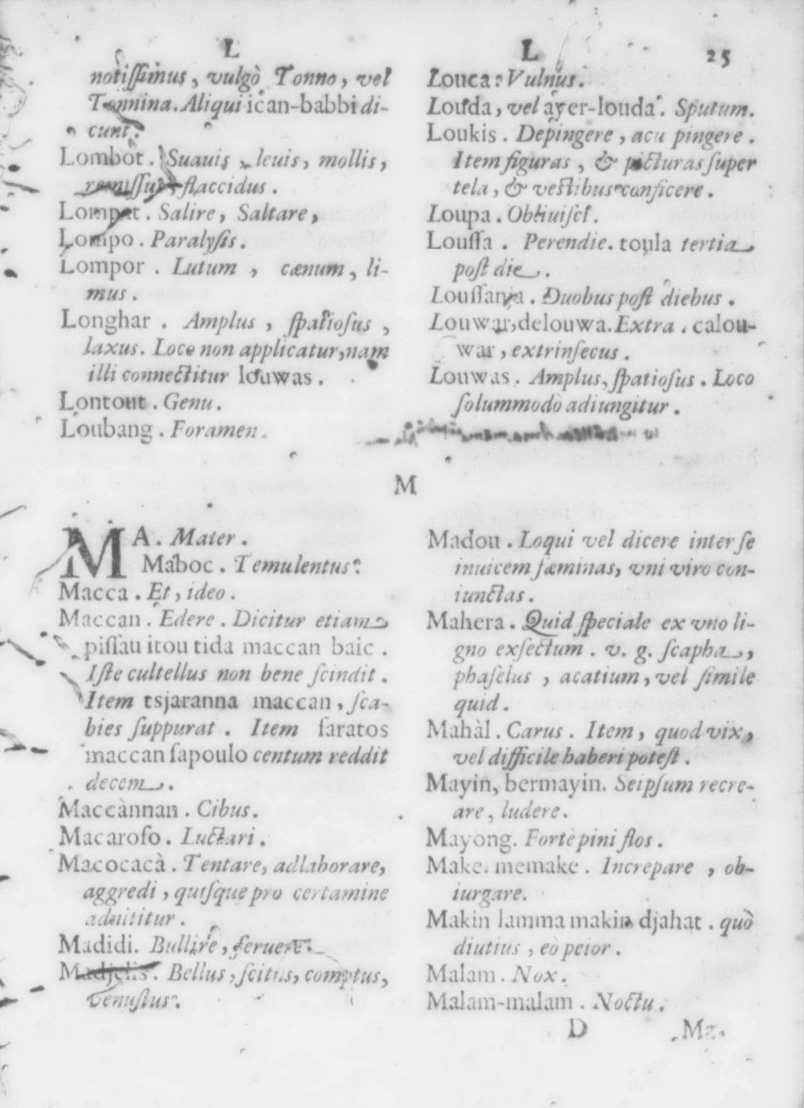 L
notiſſimus, vulgò Tonno, vel
Tonnina. Aliqui ican-babbi di-
cunt.
Lombot. Suauis, leuis, mollis,
remiſſus, flaccidus.
Lompat. Salire, Saltare,
Lompo. Paralyſis.
Lompor. Lutum, cænum, li-
mus.
Longhar. Amplus, ſpatioſus,
laxus. Loco non applicatur, nam
illi connectitur louwas.
Lontout. Genu.
Loubang. Foramen.
L 25
Louca. Vulnus.
Louda, vel ayer-louda. Sputum.
Loukis. Depingere, acu pingere.
Item figuras, & picturas ſuper
tela, & veſtibus conficere.
Loupa. Obliuiſci.
Louſſa. Perendie. toula tertia
poſt die.
Louſſania. Duobus poſt diebus.
Louwar, delouwa. Extra. calou-
war, extrinſecus.
Louwas. Amplus, ſpatioſus. Loco
ſolummodò adiungitur.
M
MA. Mater.
Maboc. Temulentus.
Macca. Et, ideo.
Maccan. Edere. Dicitur etiam
piſſau itou tida maccan baic.
Iſte cultellus non bene ſcindit.
Item tsjaranna maccan, ſca-
bies ſuppurat. Item ſaratos
maccan ſapoulo centum reddit
decem.
Maccànnan. Cibus.
Macaroſo. Luctari.
Macocacà. Tentare, adlaborare,
aggredi, quiſque pro certamine
adnititur.
Madidi. Bullire, feruere.
Madjelis. Bellus, ſcitus, comptus,
venuſtus.
Madou. Loqui vel dicere inter ſe
inuicem fæminas, vni viro con-
iunctas.
Mahera. Quid ſpeciale ex vno li-
gno exſectum. v. g. ſcapha,
phaſelus, acatium, vel ſimile
quid.
Mahàl. Carus. Item, quod vix,
vel difficile haberi poteſt.
Mayin, bermayin. Seipſum recre-
are, ludere.
Mayong. Fortè pini flos.
Make. memake. Increpare, ob-
iurgare.
Makin lamma makin djahat. quò
diutius, eo peior.
Malam. Nox.
Malam-malam. Noctu.
D Ma-